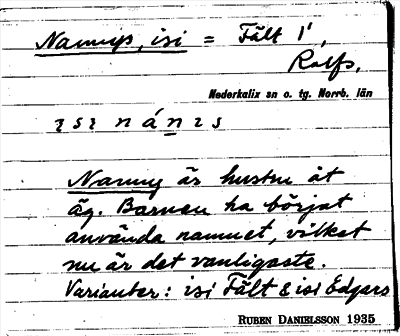 Nannys, isi = Fält 1,
Rolfs.
Nederkalix sn o. tg. Norrb. län
ısı nánıs
Nanny är hustru åt
äg. Barnen ha börjat
använda namnet, vilket
nu är det vanligaste.
Varianter: isi Fält & isi Edgars
RUBEN DANIELSSON 1935